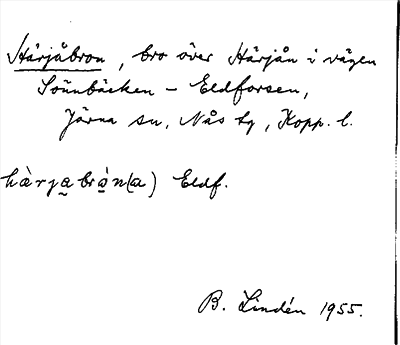 Härjåbron, bro över Härjån i vägen
Sönnbäcken - Eldforsen,
Järna sn, Nås tg, Kopp. l.
hàrja brò̲n(a) Eldf.
B. Lindén 1955.